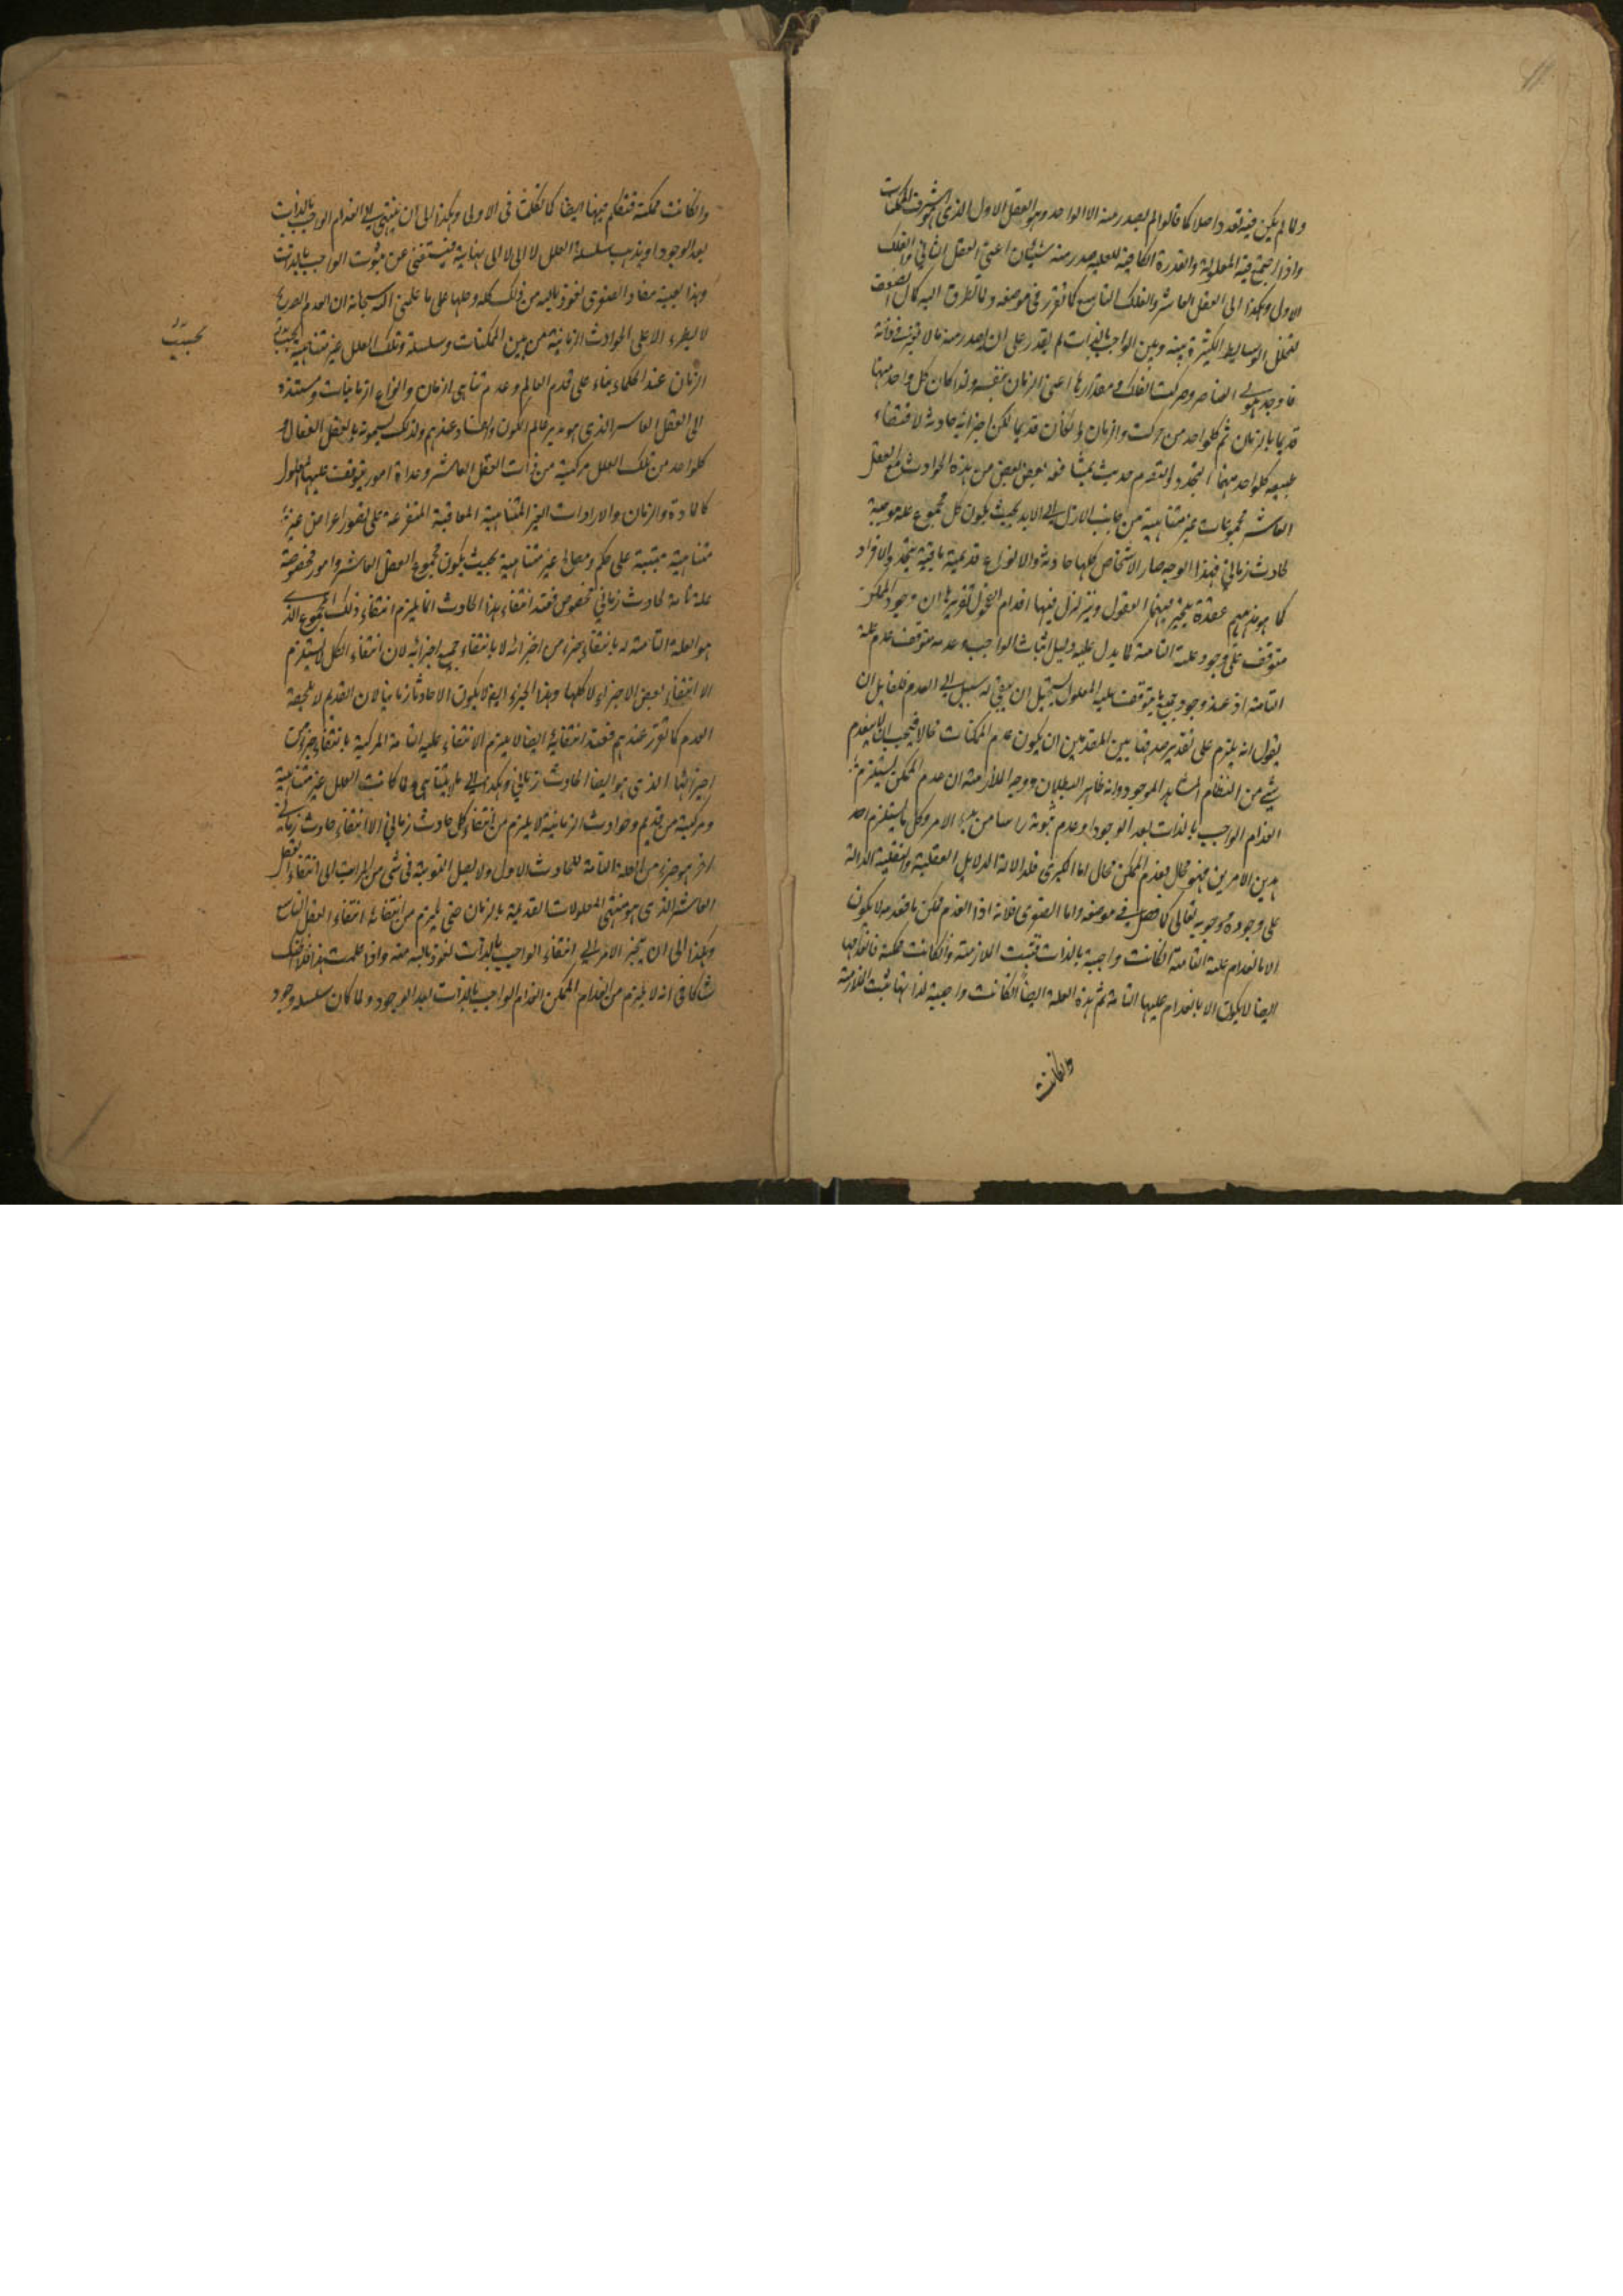 ولما لم يكن فيه تعدد اصلا كما قالوا لم يصدر منه الا الواحد وهو العقل الاول الذى هو اشرف الممكنات
واذا اجتمع فيه المعلولية والقدرة الكافية للعلية صدر منه شيئان اعنى العقل الثاني والفلك
الاول وهكذا الى العقل العاشر والفلك التاسع كما تقرر فى موضعه ولما تطرق اليه كمال الضعف
لتخلل الوسايط الكثيرة بينه وبين الواجب بالذات لم يقدر على ان يصدر منه ما لا
فاوجد هيولى العناصر وحركت الفلك ومقدارها اعنى الزمان بنفسه ولذا كان كل واحد منها
قديما بالزمان ثم كلواحد من حركت والزمان وان كان قديما لكن اجزائه حادثة لاقتضاء
طبيعه كلواحد منهما التجدد والتقدم حديث بعض بعض من هذه الحوادث مع العقل
العاشر مجموعات غير متناهية من جانب الازل الى الابد بحيث يكون كل مجموع علة موجبة
لحادث زمانى فبهذا الوجه صار الاشخاص كلها حادثة والانواع قديمة باقية بتجدد الافراد
كما هو مذهبهم عقدة يتحير فيها العقول ويتزلزل فيها اقدام الفحول تقريرها ان وجود الممكن
متوقف على وجود علته التامة كما يدل عليه دليل اثبات الواجب وعدمه متوقف على عدم علته
التامة اذ عند وجود جميع ما يتوقف عليه المعلول يستحيل ان يبقى له سبيل الى العدم فلقايل ان
يقول انه يلزم على تقدير صدق هاتين المقدمتين ان يكون عدم الممكنات محالا فيجب ان لا ينعدم
شئ من النظام المشاهد الموجود وانه ظاهر البطلان ووجه الملازمة ان عدم الممكن يستلزم
انعدام الواجب بالذات بعد الوجود او عدم ثبوته راسا من بدء الامر وكل ما يستلزم احد
هذين الامرين فهو محال فعدم الممكن محال اما الكبرى فلدلالة الدلايل العقلية والنقلية الدالة
على وجوده ووجوبه تعالى كما فصل فى موضعه واما الصغرى فلانه اذا انعدم ممكن ما فعدمه لا يكون
الا بانعدام علته التامة ان كانت واجبة بالذات فثبت الملازمة وان كانت ممكنة فانعدامها
ايضا لا يكون الا بانعدام علتها التامة ثم هذه العلة ايضا ان كانت واجبة لذاتها ثبت الملازمة
وان كانت
وان كانت ممكنة فنتكلم فيها ايضا كما تكلمت فى الاولى وهكذا الى ان ينتهى الى انعدام الواجب بالذات
بعد الوجود او يذهب سلسلة العلل لا الى نهاية فيستغنى عن ثبوت الواجب بالذات
وهذا بعينه مفاد الصغرى نعوذ بالله من ذلك كله وحلها على ما علمنى الله سبحانه ان العدم الصريح
لا يطرء الا على الحوادث الزمانية من بين الممكنات وسلسلة وتلك العلل غير متناهية
بحسب
الزمان عند الحكماء بناء على قدم العالم وعدم تناهى ازمان وانواع الزمانيات ومستندة
الى العقل العاشر الذى هو مدبر عالم الكون والفساد عندهم ولذلك يسمونه بالعقل الفعال و
كلواحد من تلك العلل مركبة من ذات العقل العاشر وعداة امور يتوقف عليها المعلول
كالمادة والزمان والارادات الغير المتناهية المعاقبة المتفرعة على تصور اعراض غير
متناهية مبتنية على حكم ومصالح غير متناهية بحيث يكون مجموع العقل العاشر وامور مخصوصة
علة تامة لحادث زمانى مخصوص فعند انتفاء هذا الحادث انما يلزم انتفاء ذلك المجموع الذى
هو العلة التامة له بانتفاء جزء من اجزائه لا بانتفاء جميع اجزائه لان انتفاء الكل لا يستلزم
الا انتفاء بعض الاجزاء لا كلها وهذا الجزء ايضا لا يكون الا حادثا زمانيا لان القديم لا يلحقه
العدم كما تقرر عندهم فعند انتفائه ايضا لا يلزم الا انتفاء علته التامة المركبة بانتفاء جزء من
اجزائها الذى هو ايضا الحادث زمانى وهكذا الى ما لا يتناهى ولما كانت العلل غير متناهية
ومركبة من قديم وحوادث الزمانية لا يلزم من انتفاء كل حادث زمانى الا انتفاء حادث زمانى
اخر هو جزء من العلة التامة للحادث الاول ولا يصل النوبة فى شئ من المراتب الى انتفاء العقل
العاشر الذى هو منتهى المعلولات القديمة بالزمان حتى يلزم من انتفائه انتفاء العقل التاسع
وهكذا الى ان ينجر الامر الى انتفاء الواجب بالذات نعوذ بالله منه واذا علمت هذا فلا اظنك
شاكا فى انه لا يلزم من انعدام الممكن انعدام الواجب بالذات بعد الوجود ولما كان سلسله وجود